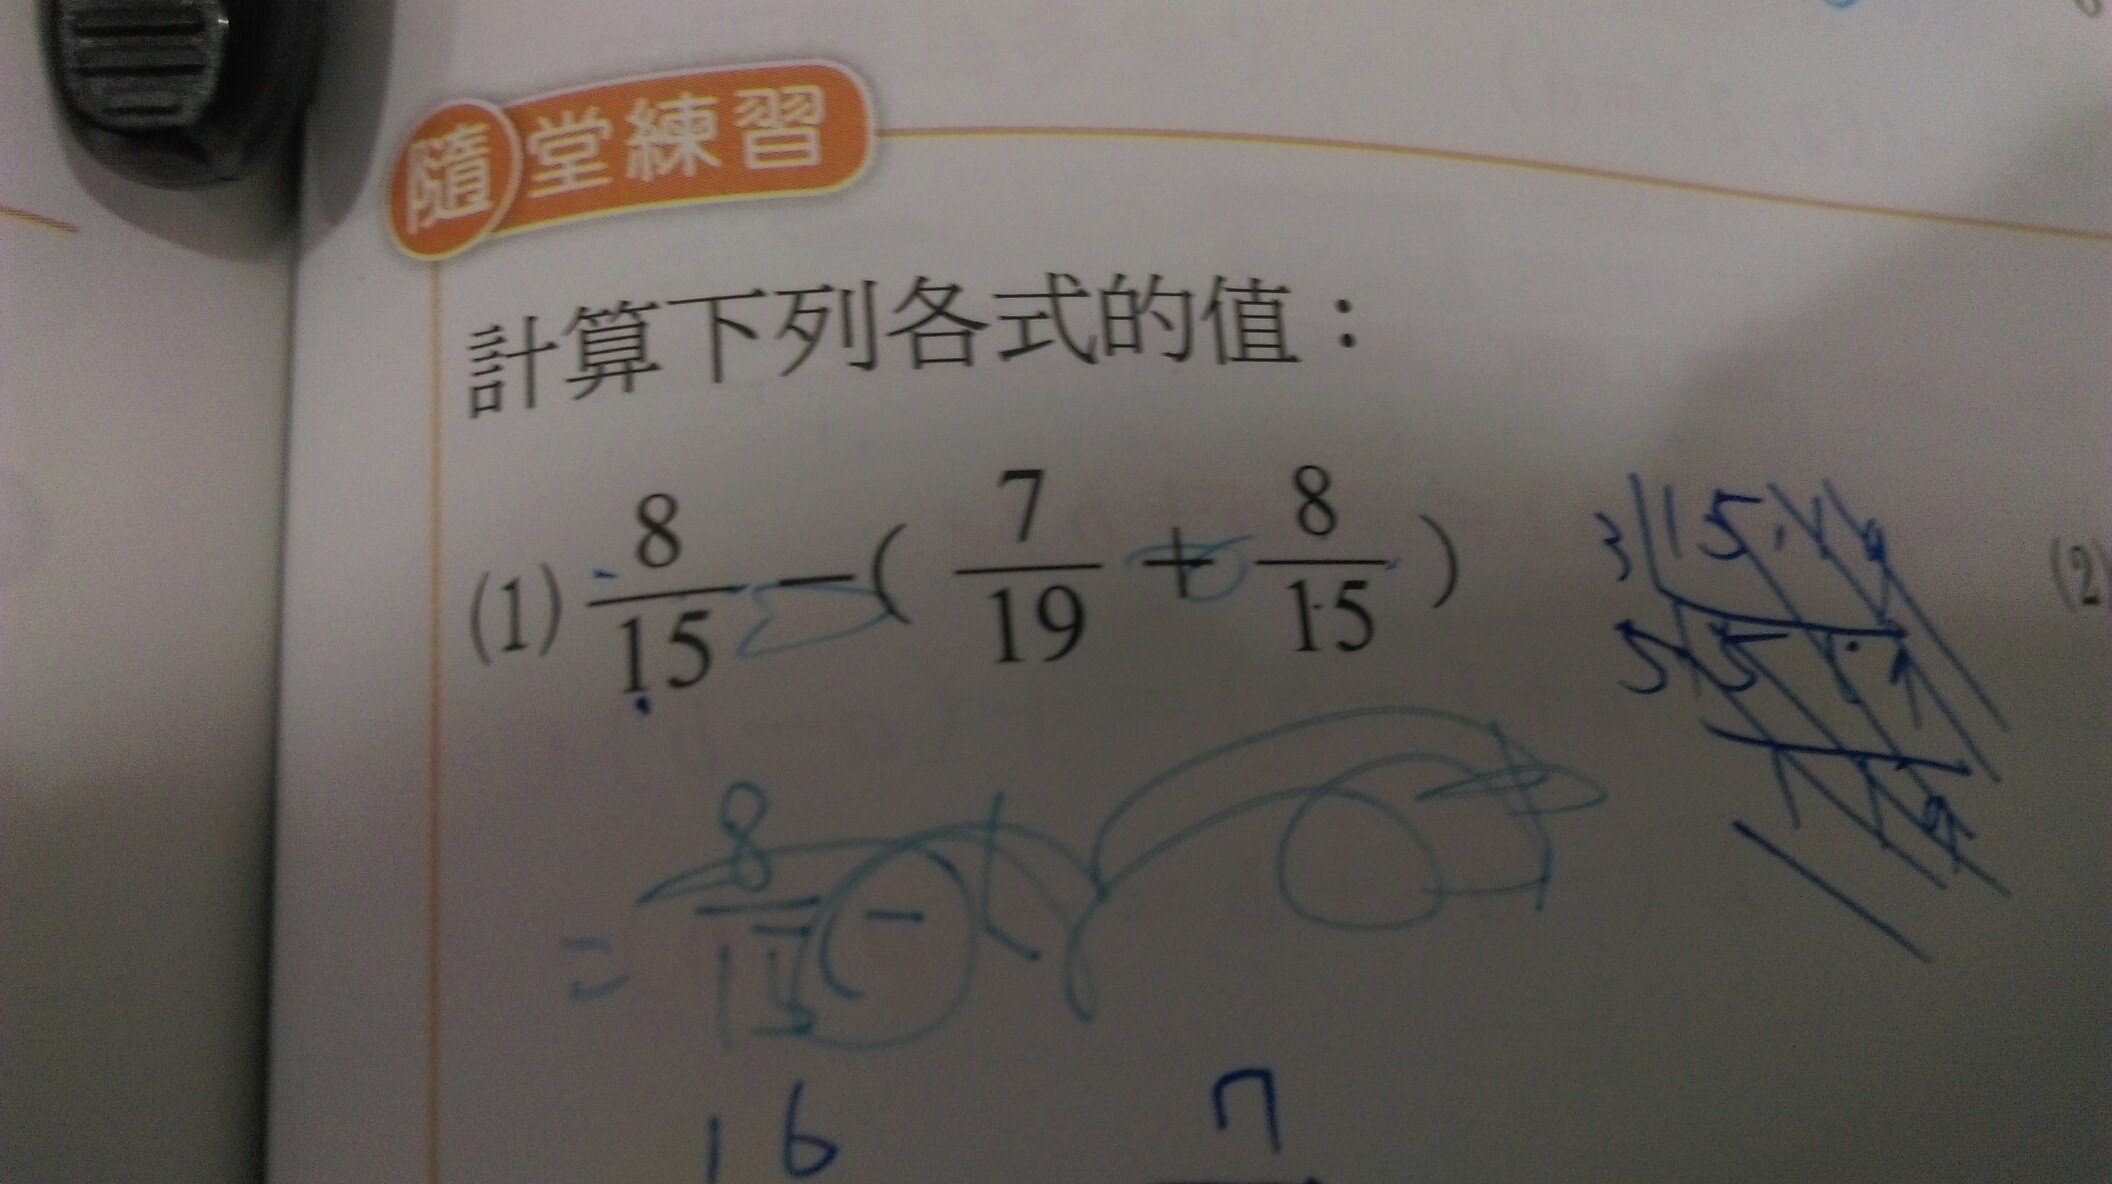 隨堂練習
計算下列各式的值：
(1) 8/15 − ( 7/19 + 8/15 )
(2)
3 15
5 5
= 8/15 −
16 7